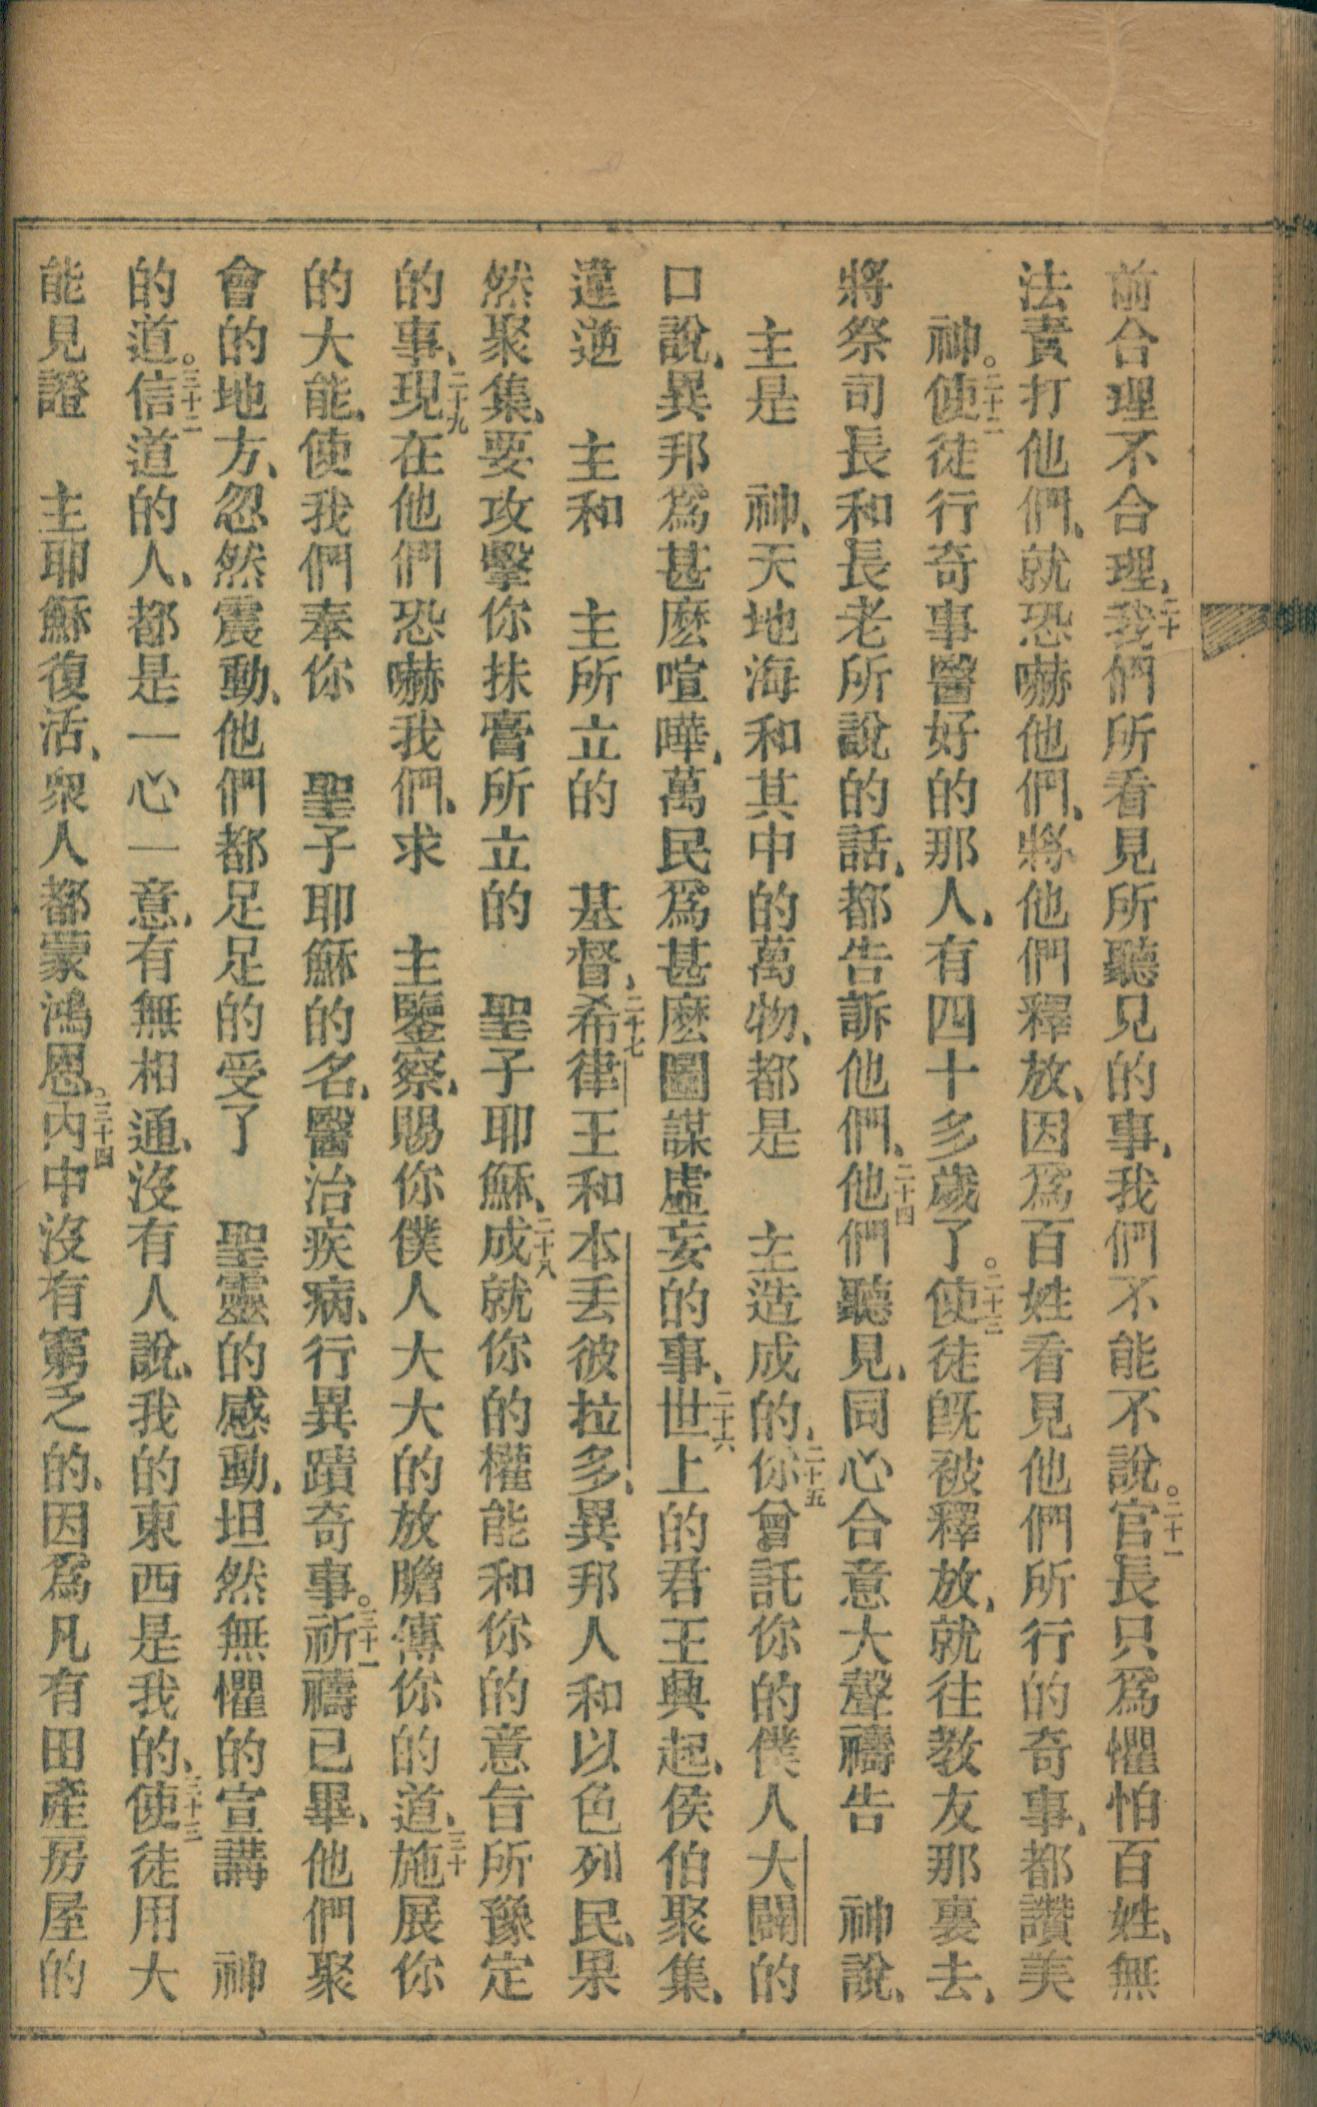 前合理不合理、二十我們所看見所聽見的事、我們不能不說。二十一官長只爲懼怕百姓、無
法責打他們、就恐嚇他們、將他們釋放、因爲百姓看見他們所行的奇事、都讚美
神。二十二使徒行奇事醫好的那人、有四十多歲了。二十三使徒旣被釋放、就往教友那裏去、
將祭司長和長老所說的話、都告訴他們、二十四他們聽見、同心合意大聲禱告　神說、
主是　神、天地海和其中的萬物、都是　主造成的、二十五你曾託你的僕人大闢的
口說、異邦爲甚麽喧嘩、萬民爲甚麽圖謀虛妄的事、二十六世上的君王興起、侯伯聚集、
違逆　主和　主所立的　基督、二十七希律王和本丢彼拉多、異邦人和以色列民、果
然聚集、要攻擊你抹膏所立的　聖子耶穌、二十八成就你的權能和你的意旨所豫定
的事、二十九現在他們恐嚇我們、求　主鑒察、賜你僕人大大的放膽傳你的道、三十施展你
的大能、使我們奉你　聖子耶穌的名、醫治疾病、行異蹟奇事。三十一祈禱已畢、他們聚
會的地方、忽然震動、他們都足足的受了　聖靈的感動、坦然無懼的宣講　神
的道。三十二信道的人、都是一心一意、有無相通、沒有人說、我的東西是我的、三十三使徒用大
能見證　主耶穌復活、衆人都蒙鴻恩。三十四內中沒有窮乏的、因爲凡有田產房屋的